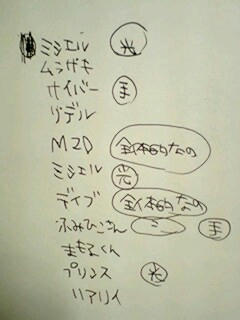 ミシェル 光
ムラサキ
サイバー 手
リデル
MZD 全体的なの
ミシェル 光
デイブ 全体的なの
ふみひこさん ミ 手
まもるくん
プリンス 光
ハァリィ